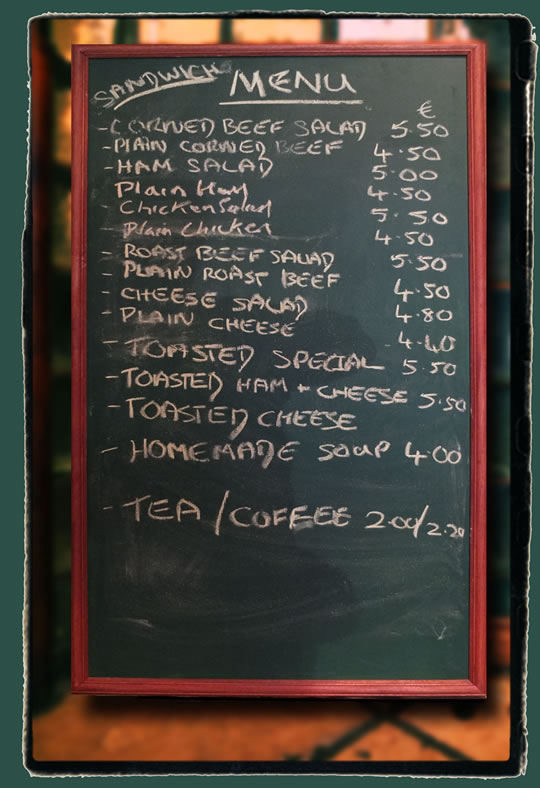 SANDWICH MENU
€
- CORNED BEEF SALAD 5.50
- PLAIN CORNED BEEF 4.50
- HAM SALAD 5.00
Plain Ham 4.50
- Chicken Salad 5.50
- Plain Chicken 4.50
- ROAST BEEF SALAD 5.50
- PLAIN ROAST BEEF 4.50
- CHEESE SALAD 4.80
- PLAIN CHEESE 4.40
- TOASTED SPECIAL 5.50
- TOASTED HAM + CHEESE 5.50
- TOASTED CHEESE
- HOMEMADE SOUP 4.00
- TEA / COFFEE 2.00/2.20